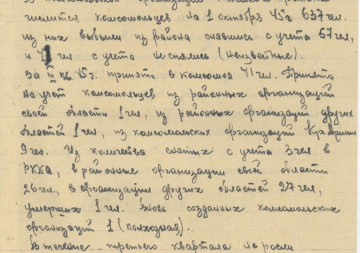 числится комсомольцев на 1 октября 45г 637 чел.
из них выбыли из района снявшись с учета 57 чел,
и 4 чел с учета не снялись (неизвестные).
За III кв. 45г. принято в комсомол 41 чел. Принято
на учет комсомольцев из районных организаций
своей области 1 чел, из районных организаций других
областей 1 чел, из комсомольских организаций Кр. Армии
9 чел. Из количества снятых с учета 3 чел в
РККА, в районные организации своей области
26 чел, в организации других областей 27 чел,
умерших 1 чел. Вновь созданных комсомольских
организаций 1 (колхозная).
В течение третьего квартала